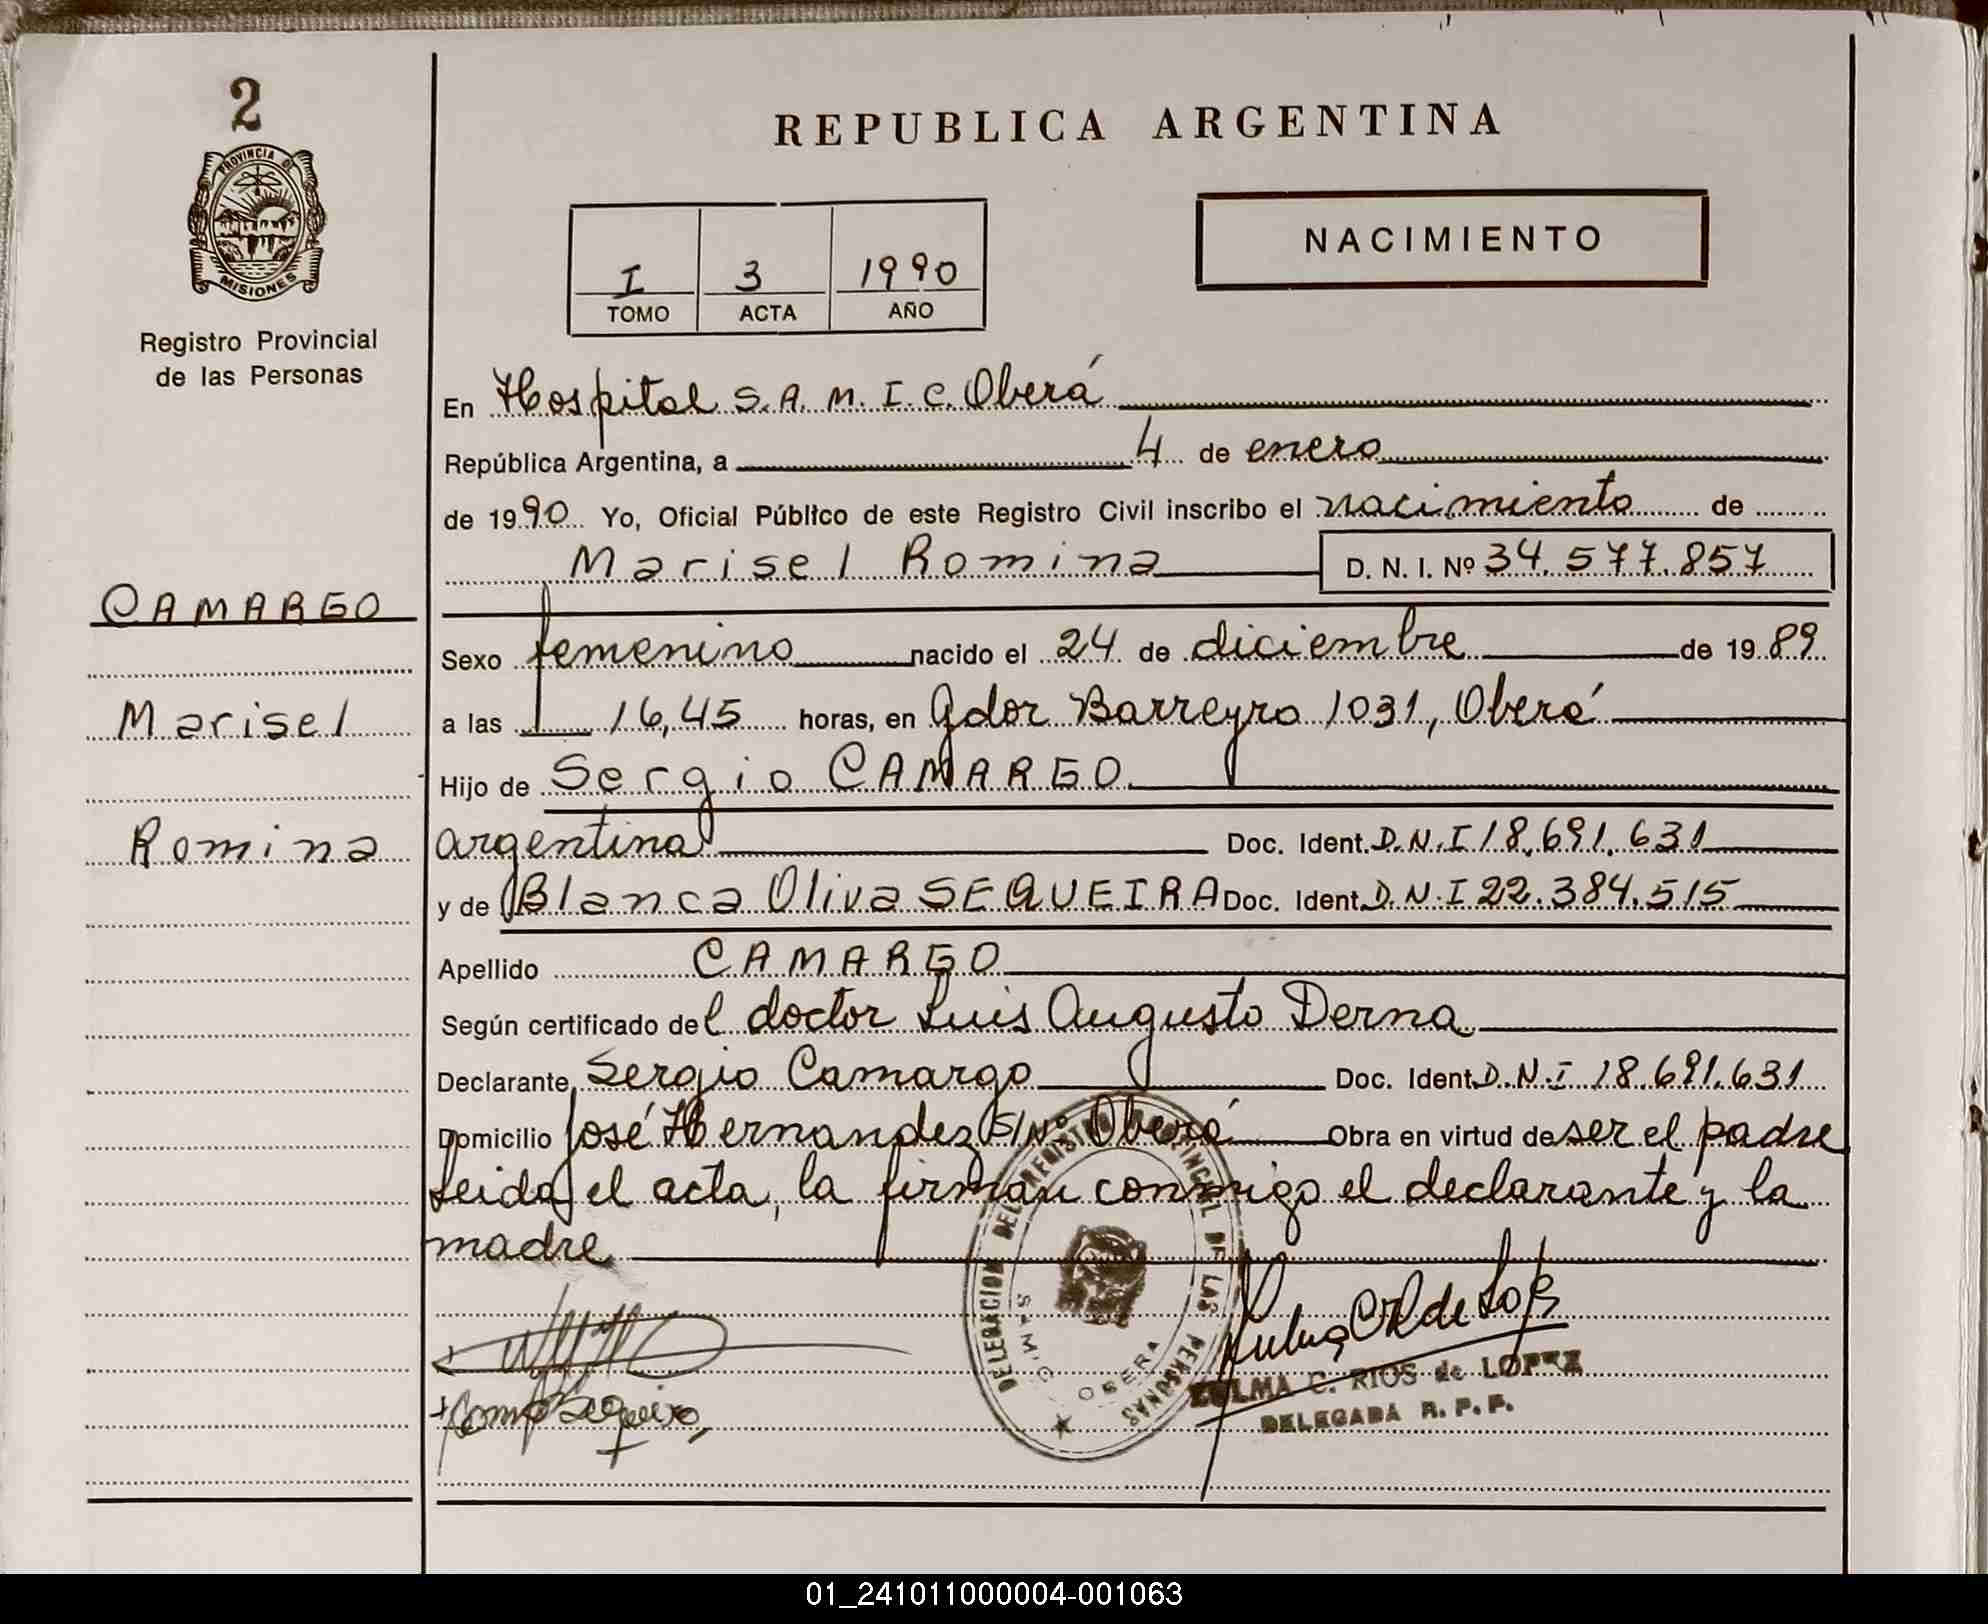 2
PROVINCIA DE
MISIONES
Registro Provincial
de las Personas
CAMARGO
Marisel
Romina
REPUBLICA ARGENTINA
I 3 1990
TOMO ACTA AÑO
NACIMIENTO
En Hospital S.A.M.I.C. Oberá
República Argentina, a 4 de enero
de 1990 Yo, Oficial Público de este Registro Civil inscribo el nacimiento de
Marisel Romina D. N. I. Nº 34.577.857
Sexo femenino nacido el 24 de diciembre de 1989
a las 16,45 horas, en Gdor Barreyro 1031, Oberá
Hijo de Sergio CAMARGO
argentina Doc. Ident. D.N.I 18.691.631
y de Blanca Oliva SEQUEIRA Doc. Ident. D.N.I 22.384.515
Apellido CAMARGO
Según certificado del doctor Luis Augusto Derna
Declarante Sergio Camargo Doc. Ident. D.N.I 18.691.631
Domicilio José Hernandez S/Nº Oberá Obra en virtud de ser el padre
Leida el acta, la firman conmigo el declarante y la
madre
DELEGACION DEL REGISTRO PROVINCIAL DE LAS PERSONAS
SAMIC OBERA
ZULMA C. RIOS de LOPEZ
DELEGADA R. P. P.
01_241011000004-001063